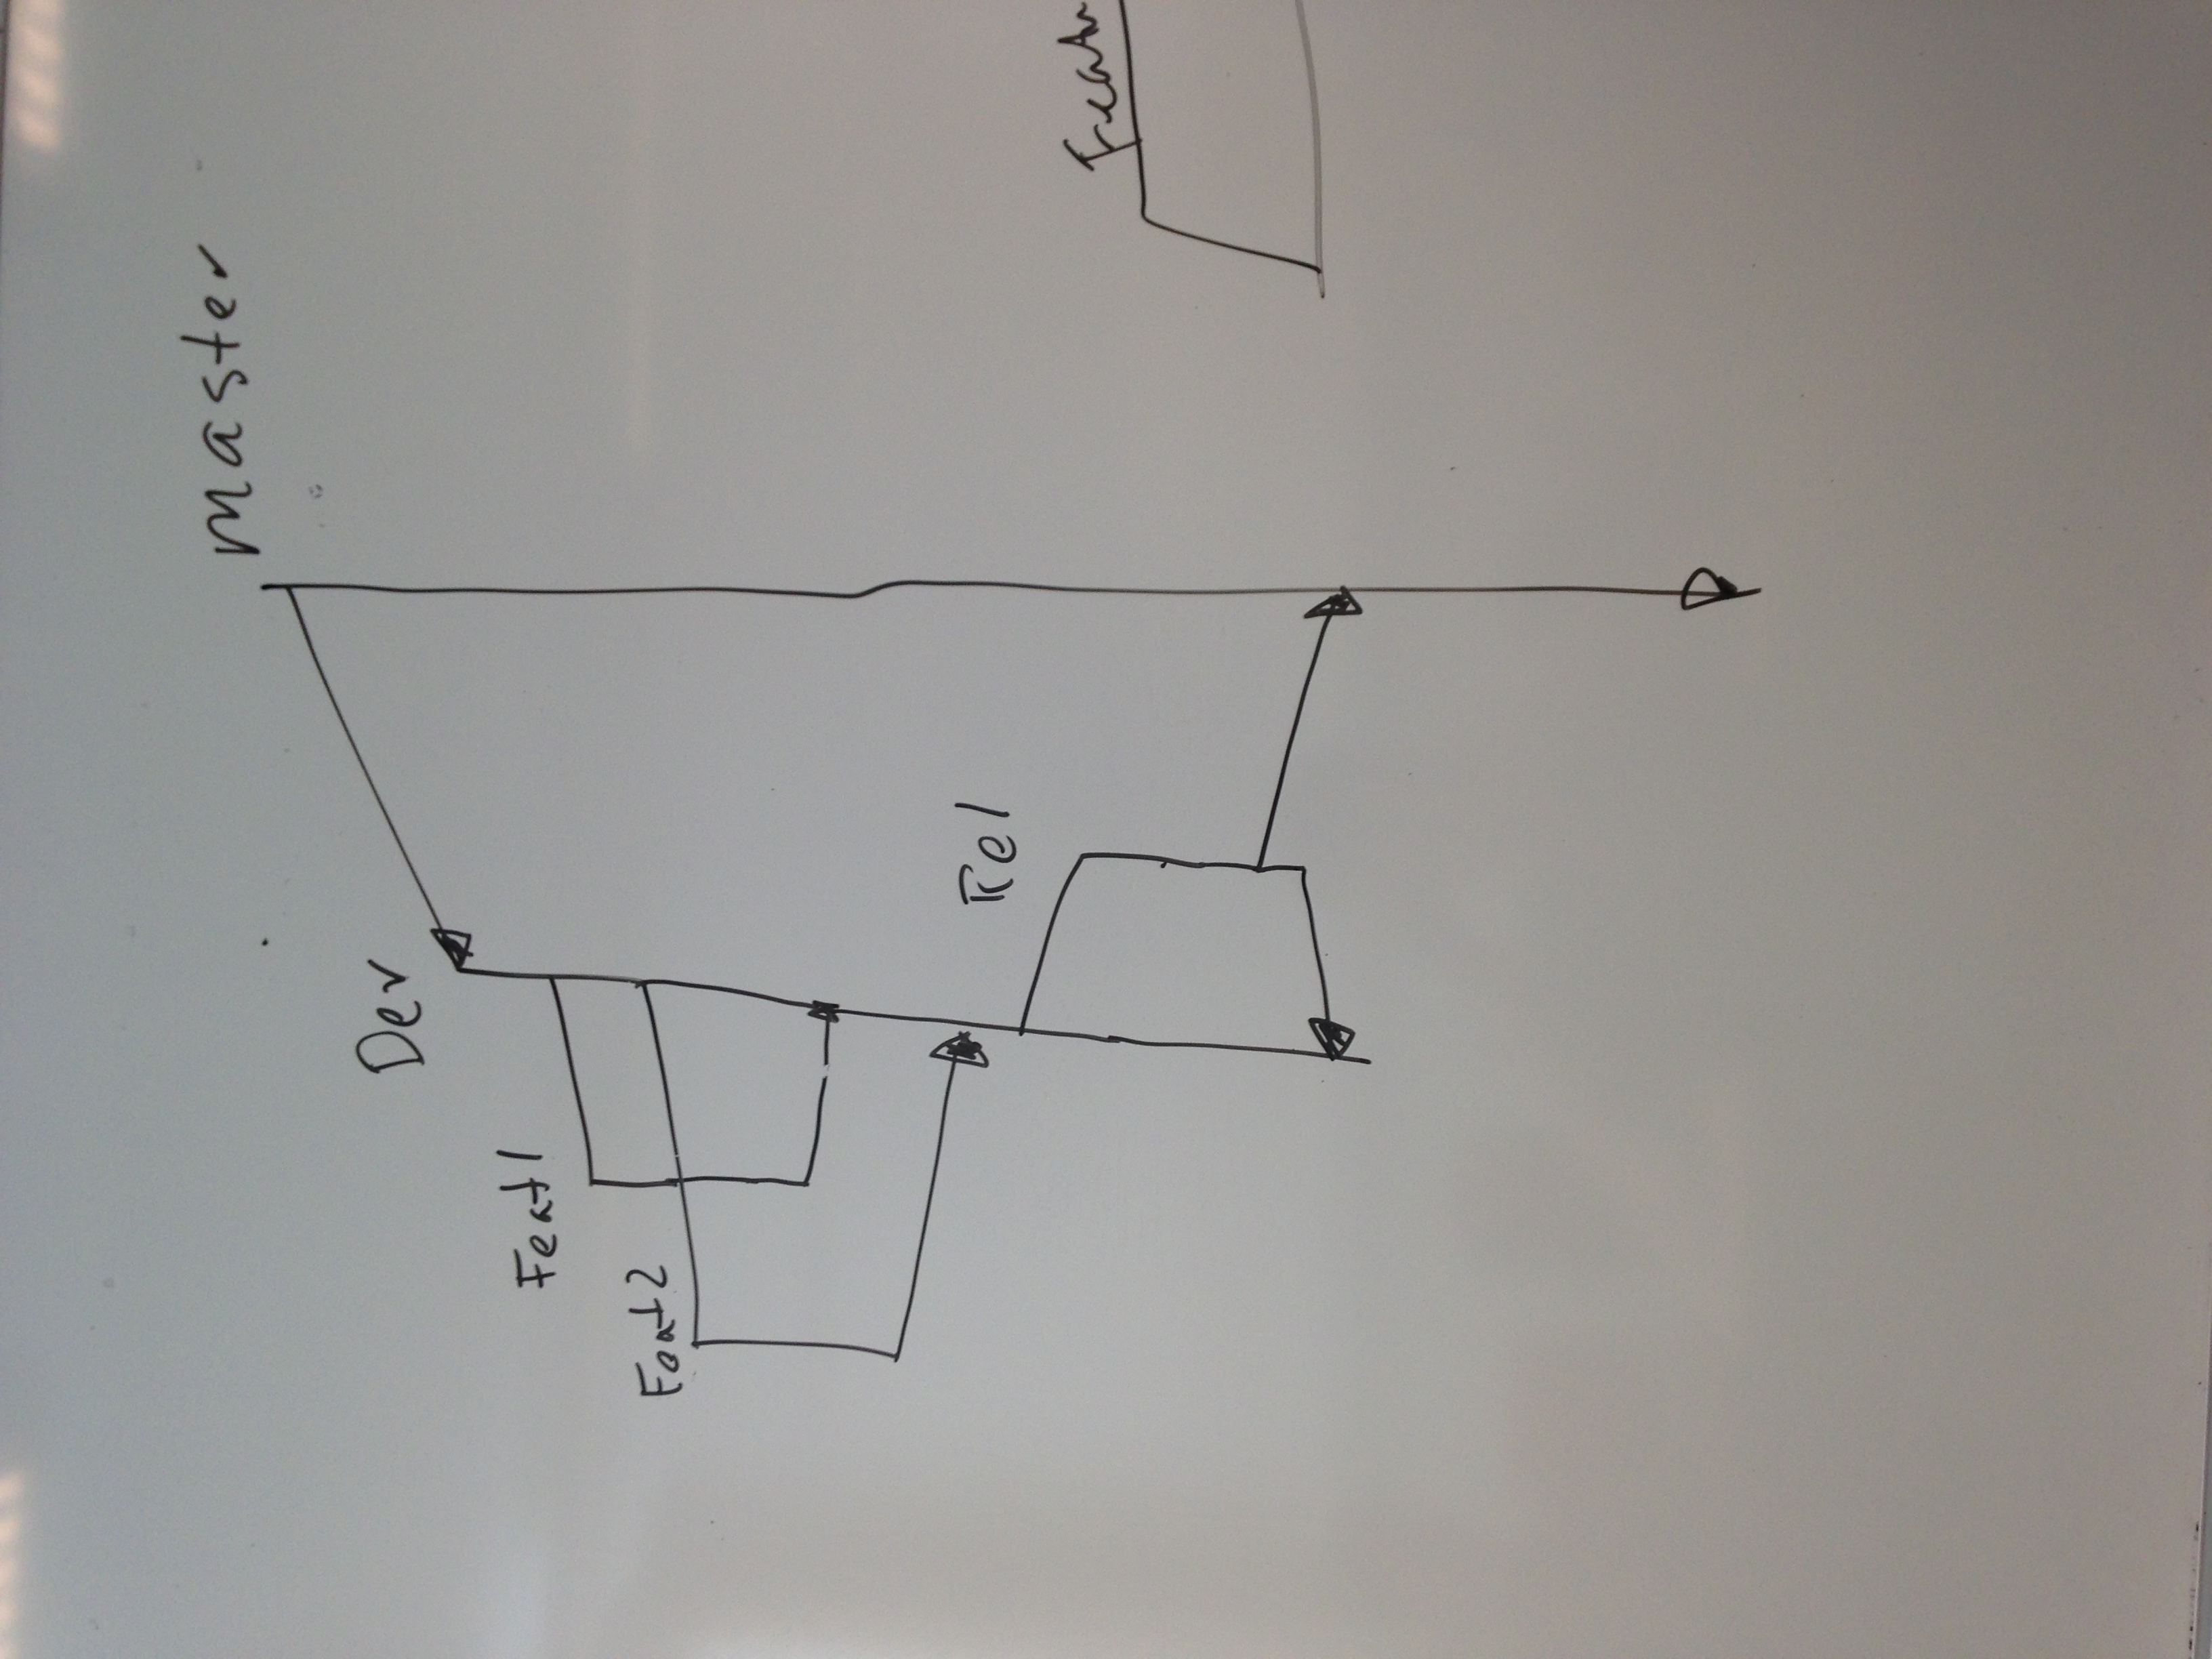 master
Dev
Feat1
Feat2
Rel
Featu